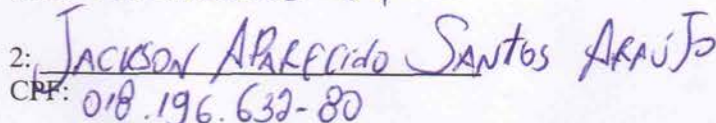 2: JACKSON APARECIDO SANTOS ARAÚJO
CPF: 018.196.632-80